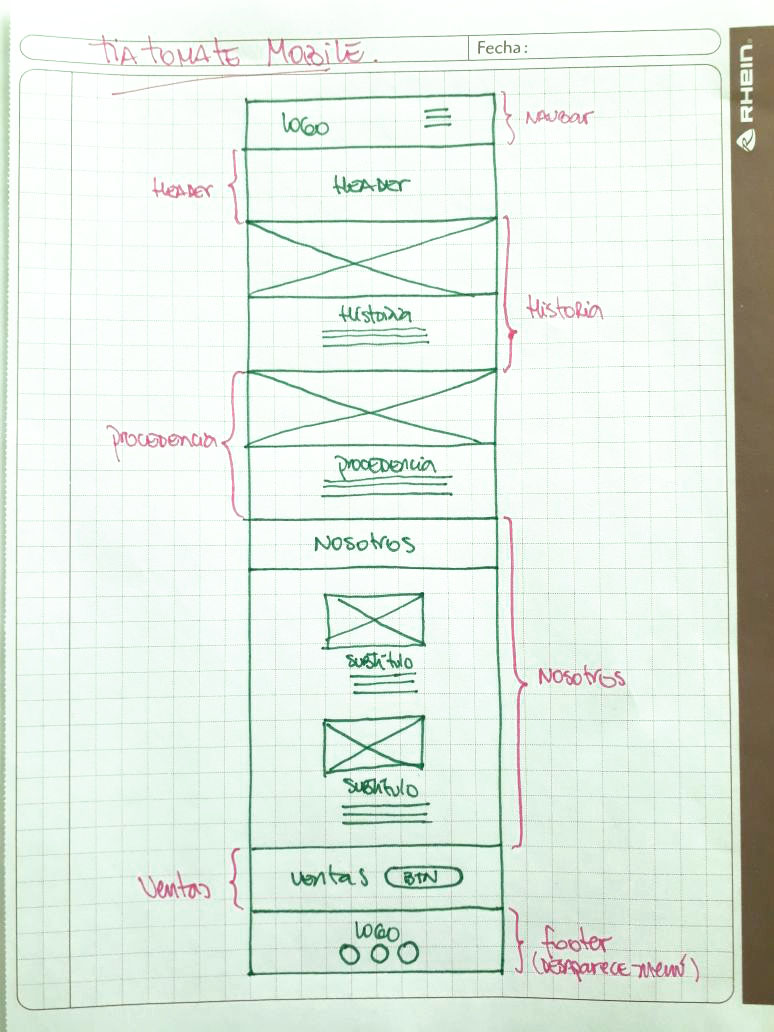 tíA tomAtE MobilE.
Fecha:
RHEIN®
LOGO
NAVBAR
HEADER
HEADER
Historia
Historia
PROCEDENCIA
PROCEDENCIA
Nosotros
Subtítulo
Nosotros
Subtítulo
Ventas
Ventas
BTN
LOGO
footer
(DESAPARECE menú)